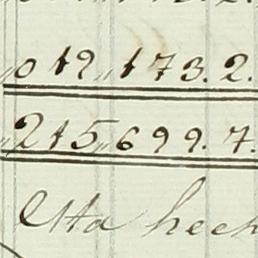 „012„173.2.
„215„699.7.
Otta heck